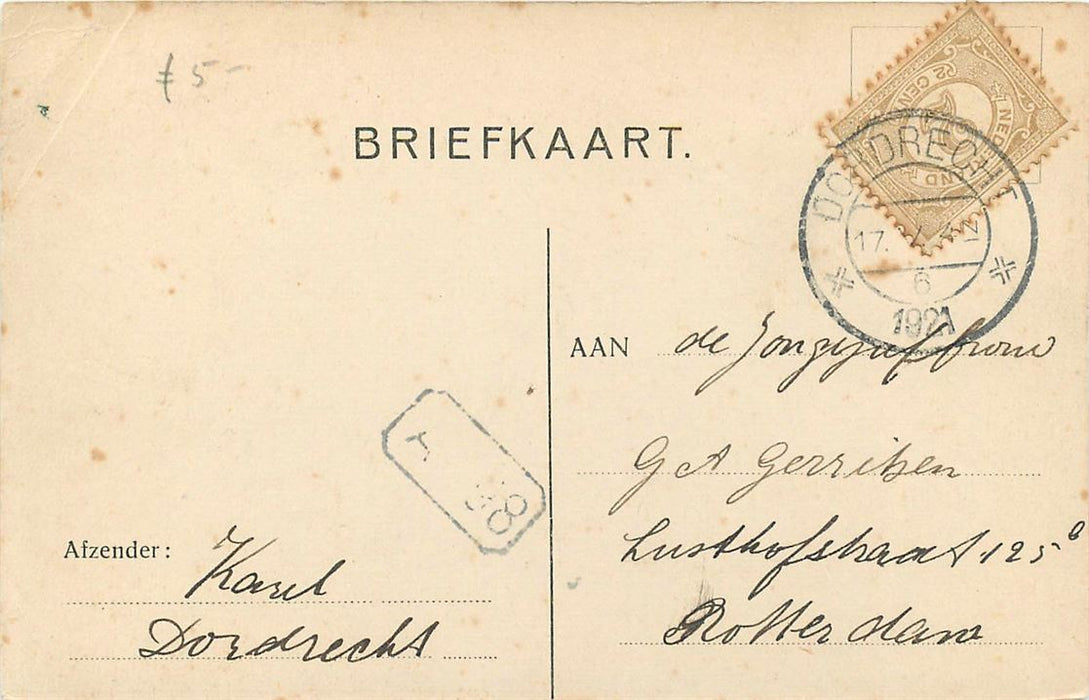 ƒ 5-
BRIEFKAART.
NEDERLAND
2½ CENT
DORDRECHT
17. 4 N
6
1921
AAN de Jongejuffrouw
G A Gerritsen
Lusthofstraat 125 b
Rotterdam
Afzender: Karel
Dordrecht